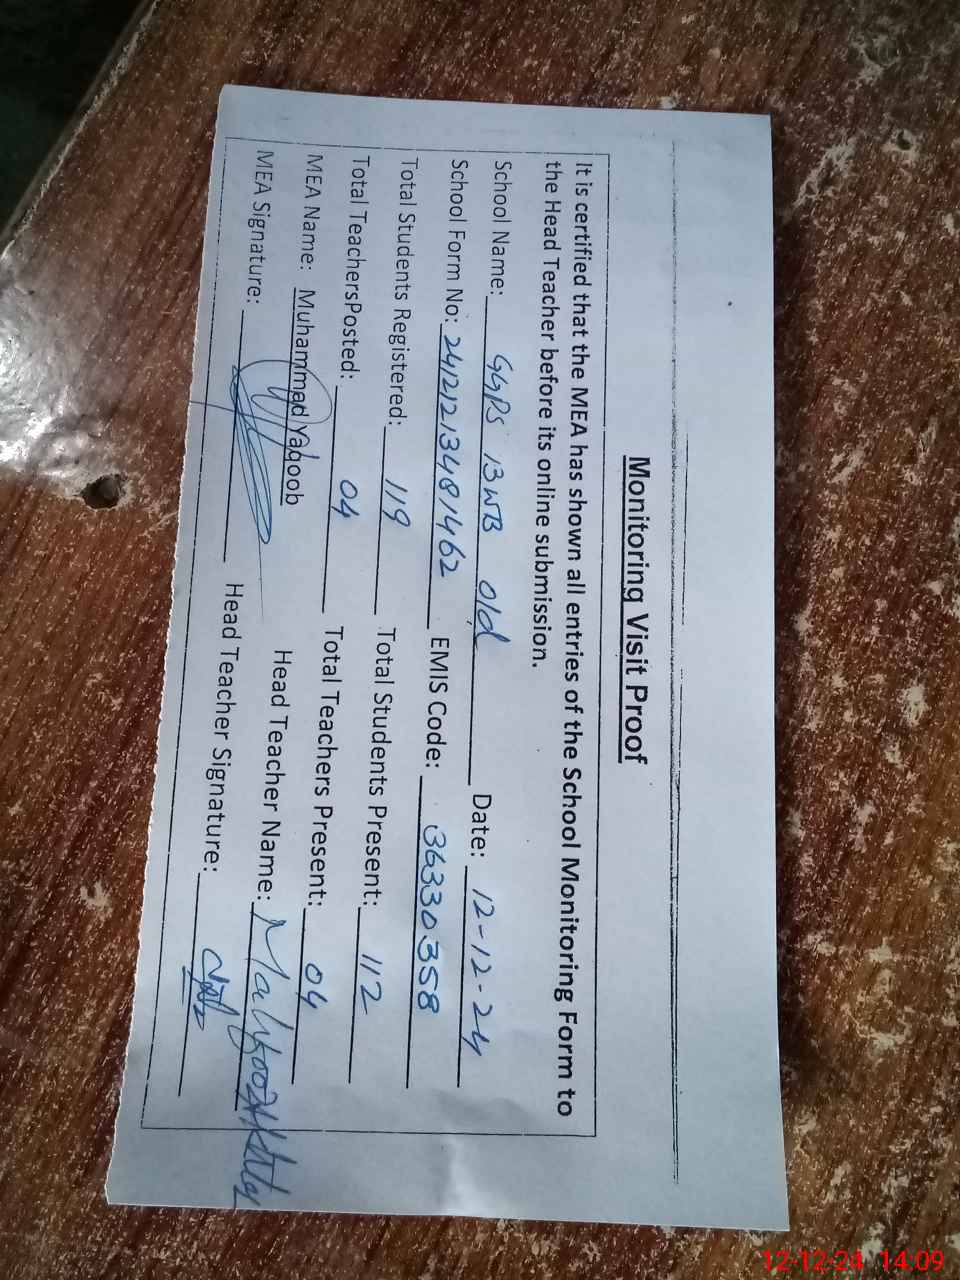 Monitoring Visit Proof
It is certified that the MEA has shown all entries of the School Monitoring Form to
the Head Teacher before its online submission.
School Name: GGPS 13WB Old Date: 12-12-24
School Form No: 24121213481462 EMIS Code: 36330358
Total Students Registered: 119 Total Students Present: 112
Total TeachersPosted: 04 Total Teachers Present: 04
MEA Name: Muhammad Yaqoob Head Teacher Name:
MEA Signature: Head Teacher Signature:
12-12-24 14:09